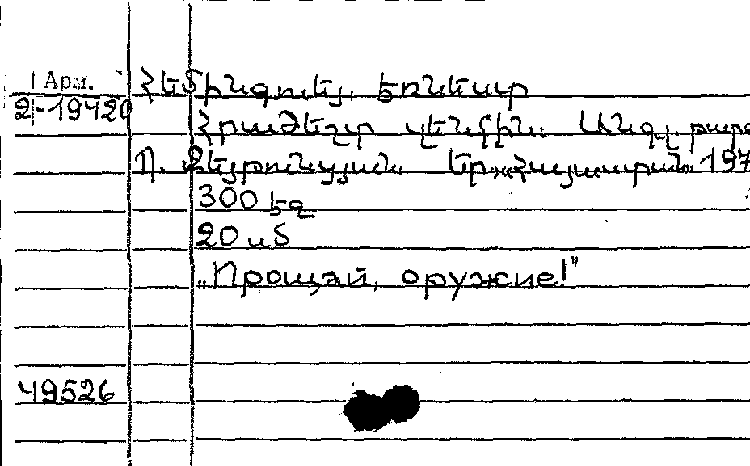 1 Арм.
2-19420
Հեմինգուեյ, Էռնեստ
Հրաժեշտ զենքին. Անգլ. թարգ
Պ. Զեյթունցյան. Եր. «Հայաստան» 197
300 էջ
20 սմ
„Прощай, оружие!"
49526